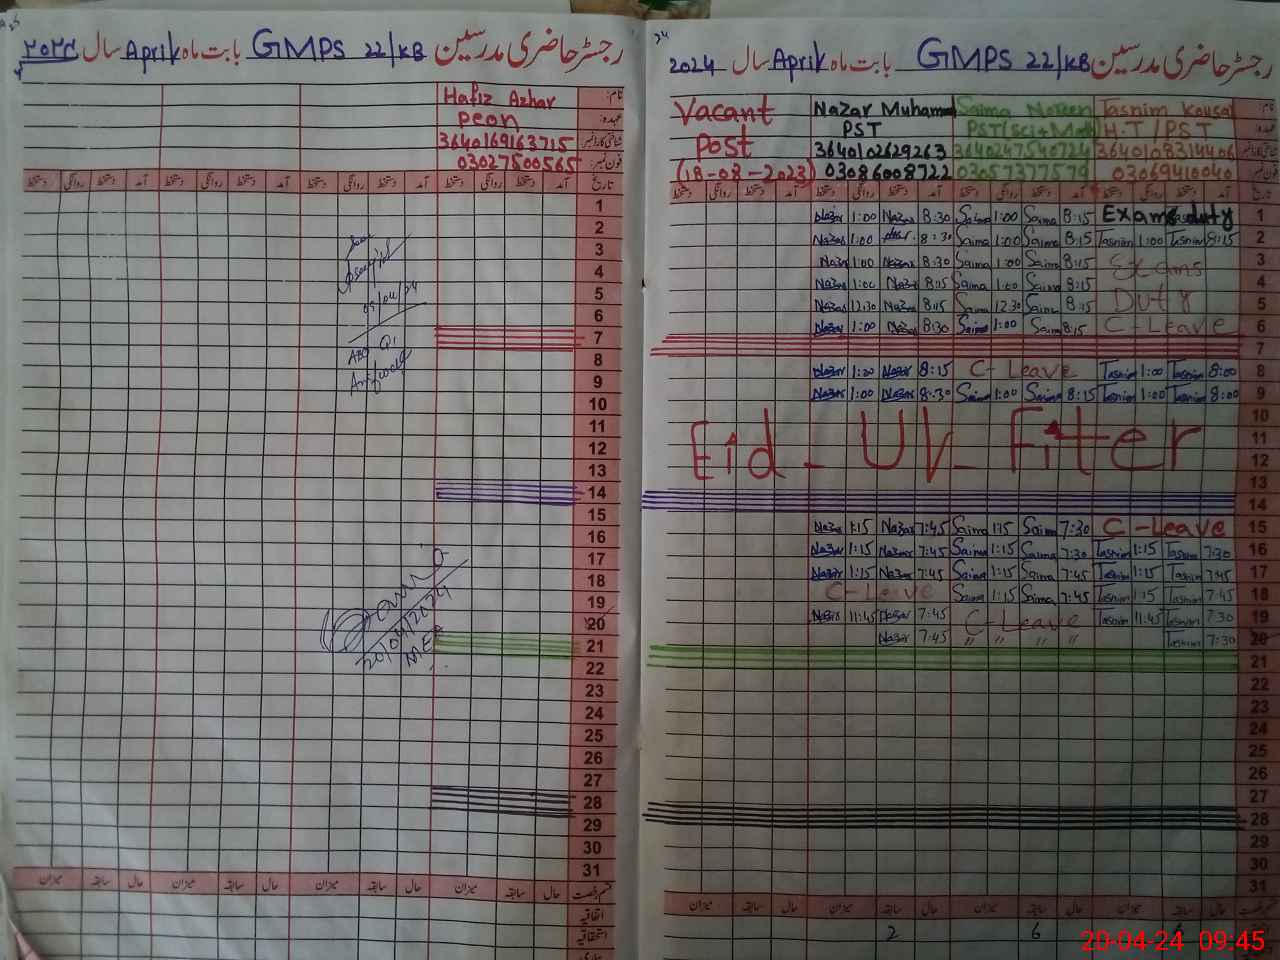 رجسٹر حاضری مدرسین GMPS 22/KB بابت ماہ April سال ۲۰۲۴
نام:
Hafiz Azhar
عہدہ:
Peon
شناختی کارڈ نمبر:
3640169163715
فون نمبر:
03027500565
تاریخ آمد دستخط روانگی دستخط آمد دستخط روانگی دستخط آمد دستخط روانگی دستخط آمد دستخط روانگی دستخط
1
2
3
4
5
6
7
8
9
10
11
12
13
14
15
16
17
18
19
20
21
22
23
24
25
26
27
28
29
30
31
05/04/24
AEO
20/04/2024
MEA
قسم رخصت حال سابقہ میزان حال سابقہ میزان حال سابقہ میزان حال سابقہ میزان
اتفاقیہ
استحقاقیہ
24
رجسٹر حاضری مدرسین GMPS 22/KB بابت ماہ April سال 2024
نام: Tasnim Kousar Saima Noreen Nazar Muhammad Vacant
عہدہ: H.T / PST PST(sci+Math) PST Post
شناختی کارڈ نمبر: 3640108314406 3640247540724 3640102629263
فون نمبر: 03069410040 03057377579 03086008722 (18-08-2023)
تاریخ آمد دستخط روانگی دستخط آمد دستخط روانگی دستخط آمد دستخط روانگی دستخط آمد دستخط روانگی دستخط
Nazar 1:00 Nazar 8:30 Saima 1:00 Saima 8:15 Exams duty 1
Nazar 1:00 8:30 Saima 1:00 Saima 8:15 Tasnim 1:00 Tasnim 8:15 2
Nazar 1:00 Nazar 8:30 Saima 1:00 Saima 8:15 Exams 3
Nazar 1:00 Nazar 8:15 Saima 1:00 Saima 8:15 4
Nazar 12:30 Nazar 8:15 Saima 12:30 Saima 8:15 Duty 5
Nazar 1:00 Nazar 8:30 Saima 1:00 Saima 8:15 C-Leave 6
7
Nazar 1:00 Nazar 8:15 C-Leave Tasnim 1:00 Tasnim 8:00 8
Nazar 1:00 Nazar 8:30 Saima 1:00 Saima 8:15 Tasnim 1:00 Tasnim 8:00 9
10
Eid - Ul - Fitter 11
12
13
14
Nazar 1:15 Nazar 7:45 Saima 1:15 Saima 7:30 C-Leave 15
Nazar 1:15 Nazar 7:45 Saima 1:15 Saima 7:30 Tasnim 1:15 Tasnim 7:30 16
Nazar 1:15 Nazar 7:45 Saima 1:15 Saima 7:45 Tasnim 1:15 Tasnim 7:45 17
C-Leave Saima 1:15 Saima 7:45 Tasnim 1:15 Tasnim 7:45 18
Nazar 11:45 Nazar 7:45 C-Leave Tasnim 11:45 Tasnim 7:30 19
Nazar 7:45 〃 〃 〃 〃 Tasnim 7:30 20
21
22
23
24
25
26
27
28
29
30
31
قسم رخصت حال سابقہ میزان حال سابقہ میزان حال سابقہ میزان حال سابقہ میزان
2 6
20-04-24 09:45